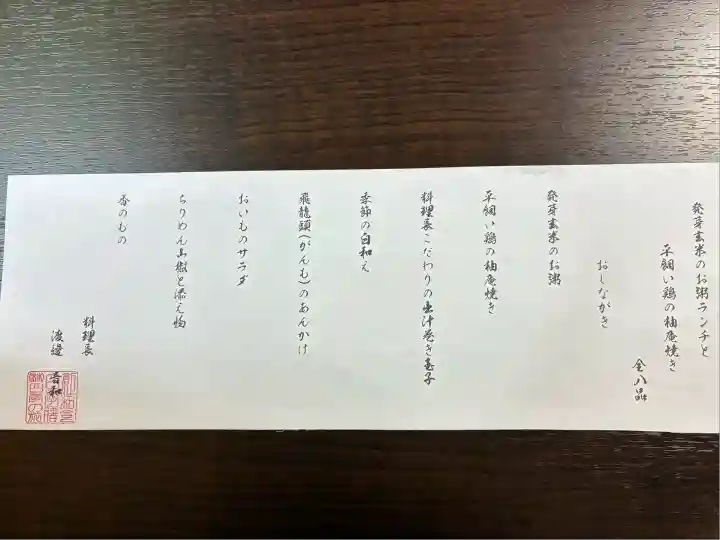 発芽玄米のお粥ランチと
平飼い鶏の柚庵焼き
全八品
おしながき
発芽玄米のお粥
平飼い鶏の柚庵焼き
料理長こだわりの出汁巻き玉子
季節の白和え
飛龍頭(がんも)のあんかけ
おいものサラダ
ちりめん山椒と添え物
香のもの
料理長
渡邉 吉和